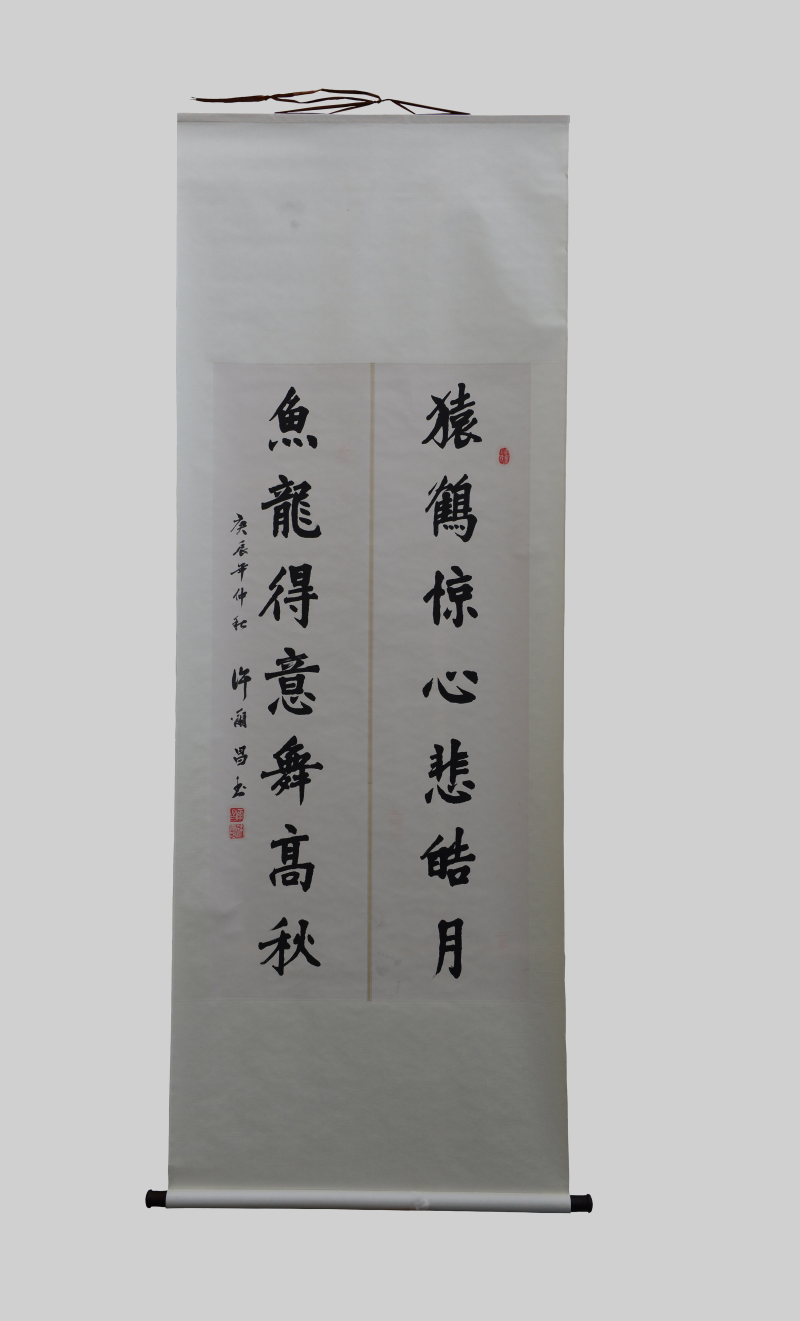 猿鶴惊心悲皓月
魚龍得意舞高秋
庚辰年仲秋 许爾昌书